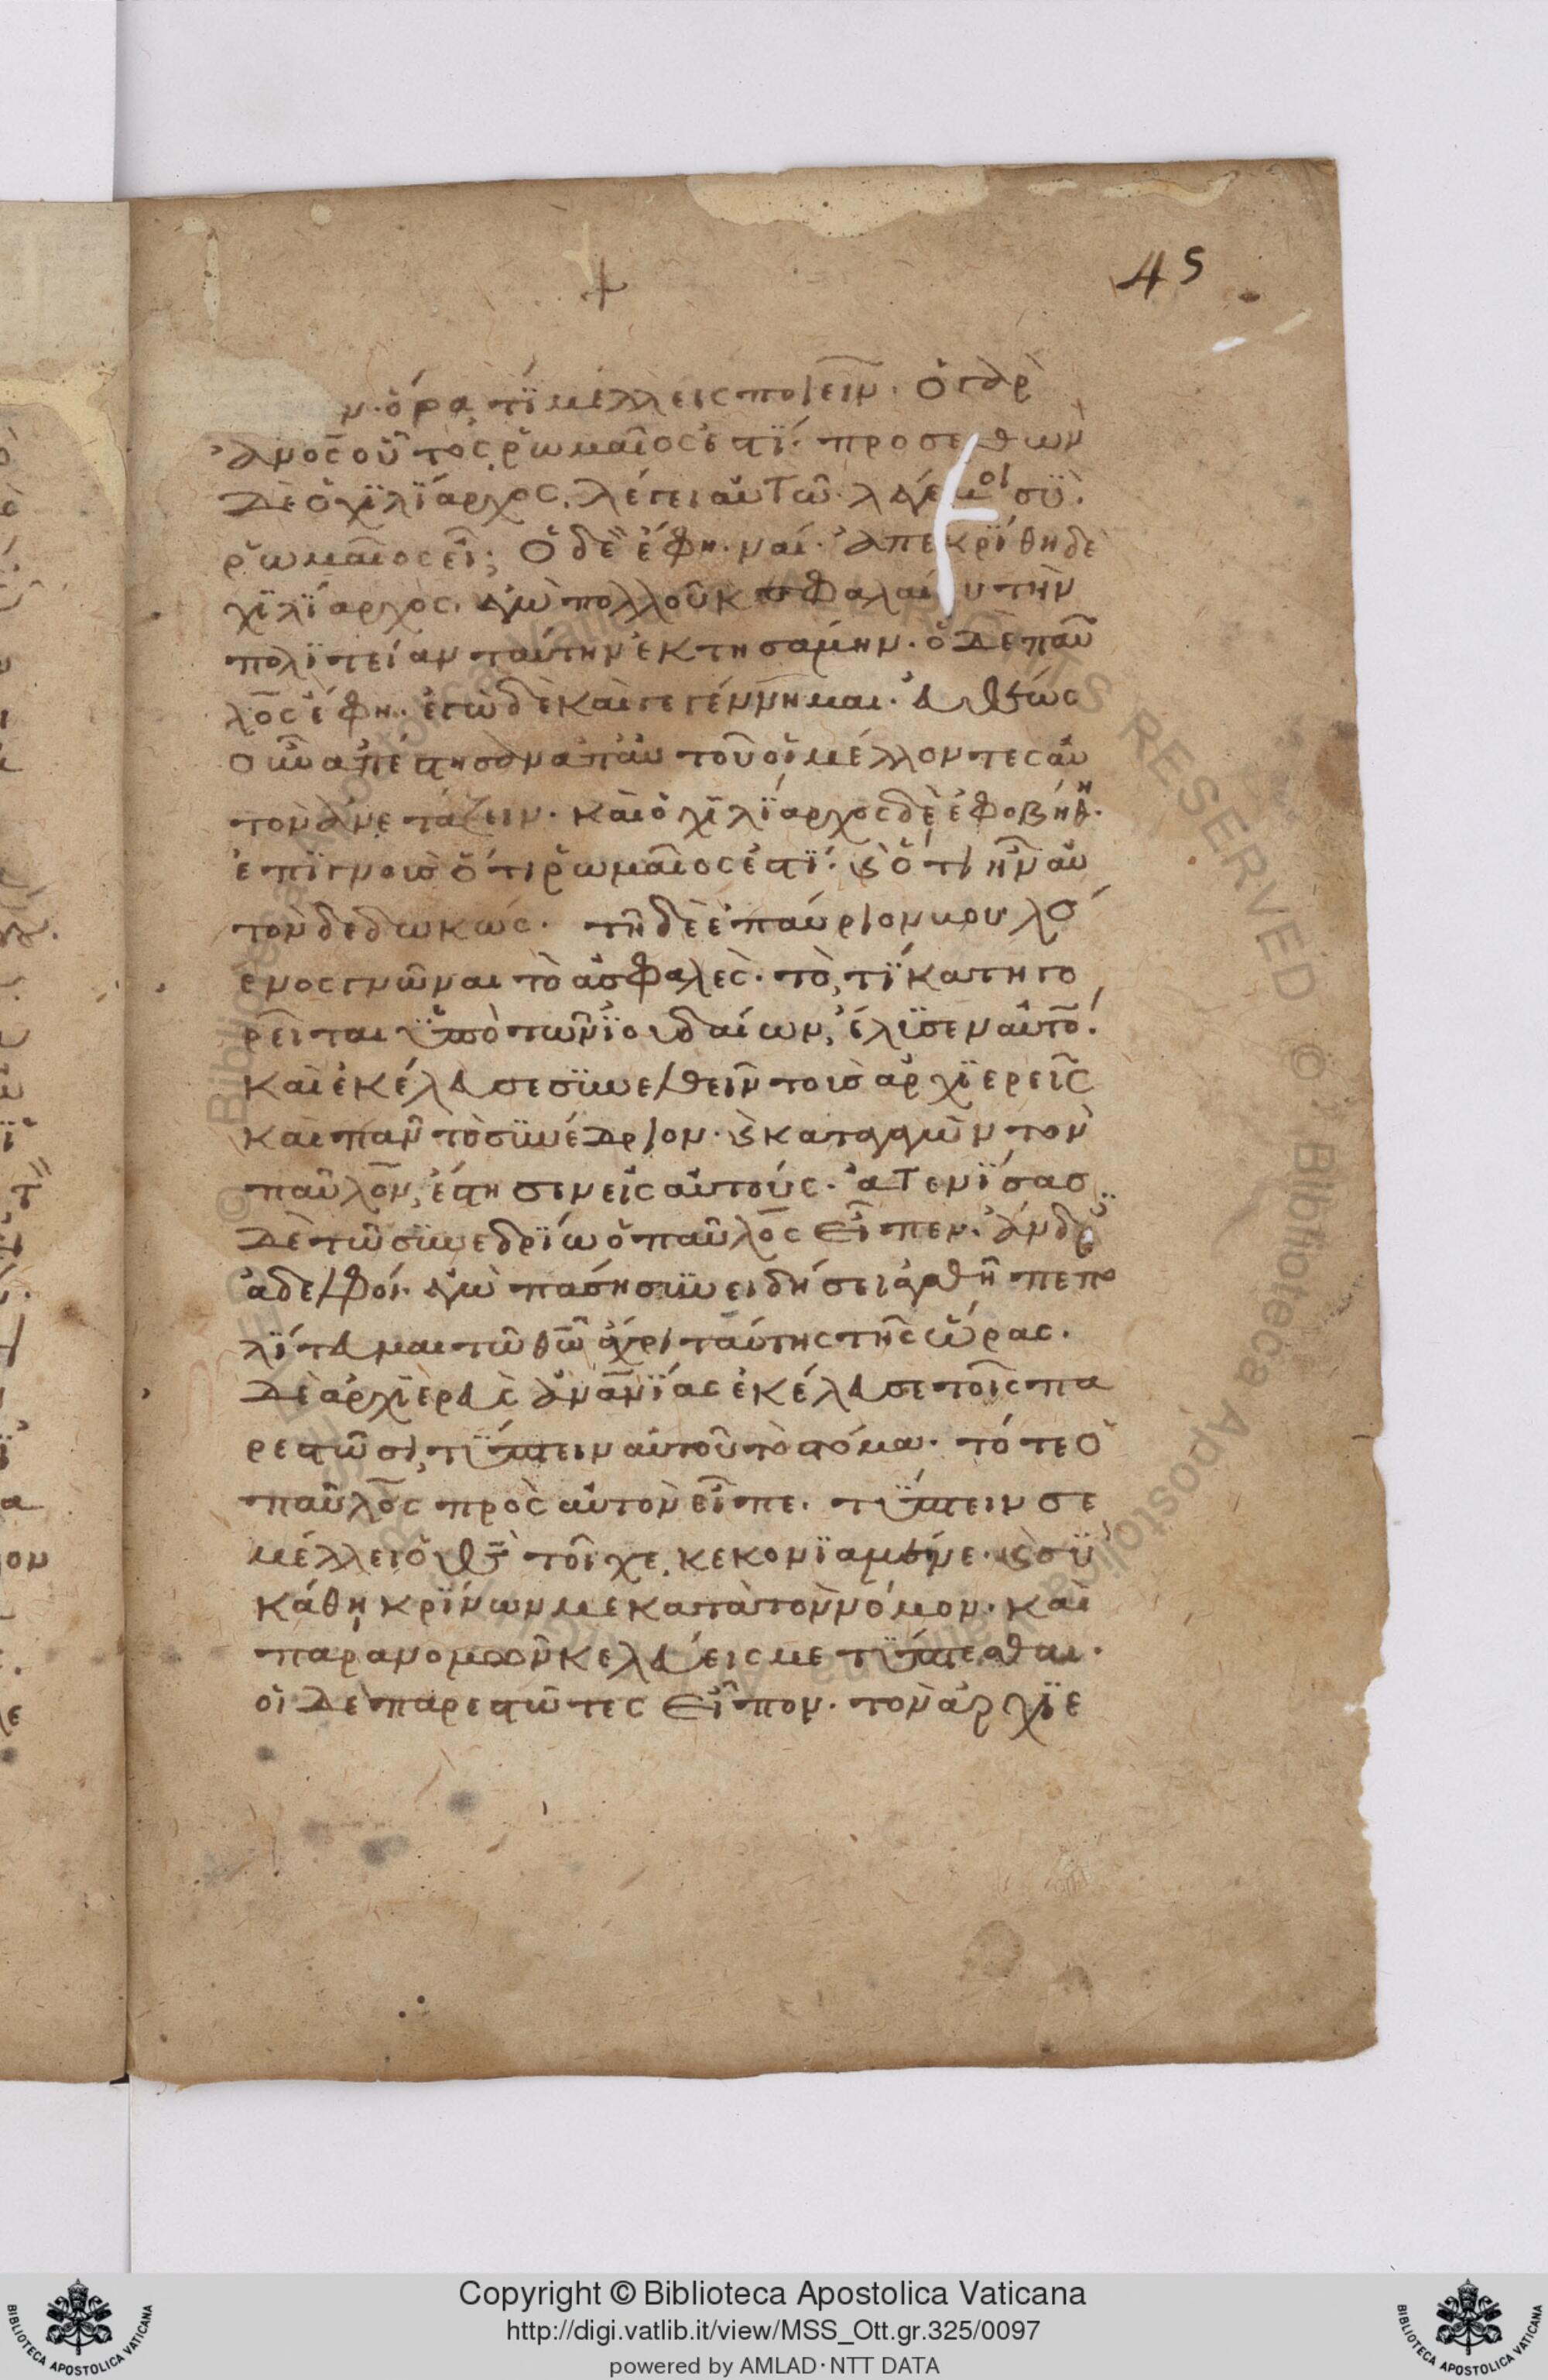 45
ν· ὅρα τί μέλλεις ποιεῖν· ὁ γὰρ
ἄνος οὗτος ῥωμαῖος ἐστϊ· προσε θων
δὲ ὁ χϊλϊάρχος, λέγει αὐτῶ· λέγε μοι σῢ
ῥωμαῖος εἶ; ὁ δὲ ἔφη· ναί· ἀπεκρϊθη δὲ
χϊλϊαρχος· ἐγὼ πολλοῦ κεφαλαί υ τὴν
πολϊτείαν ταύτην ἐκτησάμην· ὁ δὲ παῦ
λος ἔφη· ἐγὼ δὲ καὶ γεγέννημαι· εὐθέως
οὖν ἀπέστησαν ἀπ' αὐτοῦ οἱ μέλλοντες αὐ
τὸν ἀνετάζειν· καὶ ὁ χϊλϊάρχος δὲ ἐφοβήθη·
ἐπϊγνοὺσ ὅτι ῥωμαῖος ἐστϊ· ϗ ὅτι ἦν αὐ
τὸν δεδωκώς· τῆ δὲ ἐπαύριον βουλό
ενος γνῶναι τὸ ἀσφαλὲς· τὸ, τϊ κατηγο
ρεῖται ϋπὸ τῶν ϊουδαίων, ἔλϋσεν αὐτό·
καὶ ἐκέλευσε σϋνελθεῖν τοὺσ ἀρχϊερεῖς
καὶ πᾶν τὸ σϋνέδριον· ϗ καταγαγὼν τὸν
παῦλον, ἔστησεν εἰς αὐτούς· ἀτενϊσασ
δὲ τῶ σϋνεδρϊω ὁ παῦλος εἶπεν· ἄνδρ
ἀδελφοί· ἐγὼ πάση σϋνειδήσει ἀγαθῆ πεπο
λϊτευμαι τῶ θῶ ἄχρι ταύτης τῆς ὥρας·
δὲ ἀρχϊερεὺς ἀνανϊας ἐκέλευσε τοῖς πα
ρεστῶσι, τϋπτειν αὐτοῦ τὸ στόμα· τότε ὁ
παῦλος πρὸς αὐτὸν εἶπε· τϋπτειν σε
μέλλει ὁ θς τοῖχε, κεκονϊαμένε· ϗ σῢ
κάθη κρϊνων με κατὰ τὸν νόμον· καὶ
παρανομῶν κελεύεις με τϋπτεσθαι·
οἱ δὲ παρεστῶτες εἶπον· τὸν ἀρχϊε
© Biblioteca Apostolica Vaticana ALL RIGHTS RESERVED
Copyright © Biblioteca Apostolica Vaticana
http://digi.vatlib.it/view/MSS_Ott.gr.325/0097
powered by AMLAD·NTT DATA
BIBLIOTECA APOSTOLICA VATICANA
BIBLIOTECA APOSTOLICA VATICANA